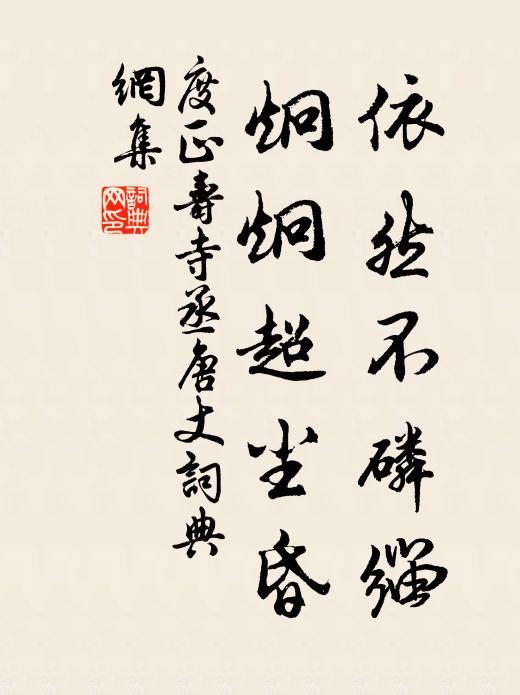 依然不磷緇
炯炯超尘昏
度正壽寺丞唐丈詞典
網集
詞典
网印